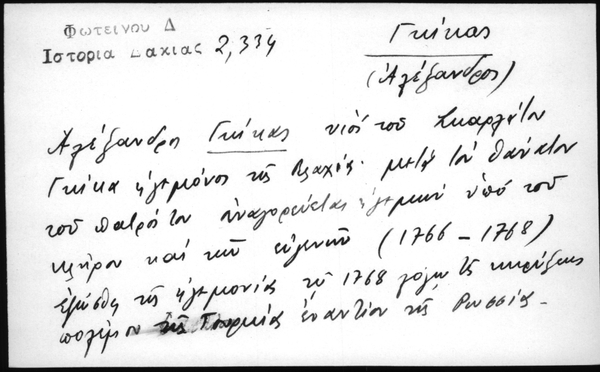 Φωτεινου Δ
Ιστορια Δακιας 2,334
Γκίκας
(Ἀλέξανδρος)
Ἀλέξανδρος Γκίκας υἱός τοῦ Σκαρλάτου
Γκίκα ἡγεμόνος τῆς Βλαχίας. μετά τόν θάνατον
τοῦ πατρός του ἀναγορεύεται ἡγεμών ὑπό τοῦ
κλήρου καί τῶν εὐγενῶν (1766 - 1768)
τῆς ἡγεμονίας τῷ 1768 λόγῳ τῆς κηρύξεως
πολέμου τῆς Τουρκίας ἐναντίον τῆς Ρωσσίας.